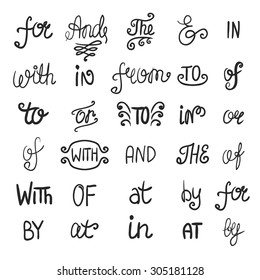 for And The & IN
with in from TO of
to or TO in or
of WITH AND THE of
WITH OF at by for
BY at in AT by
shutterstock.com · 305181128